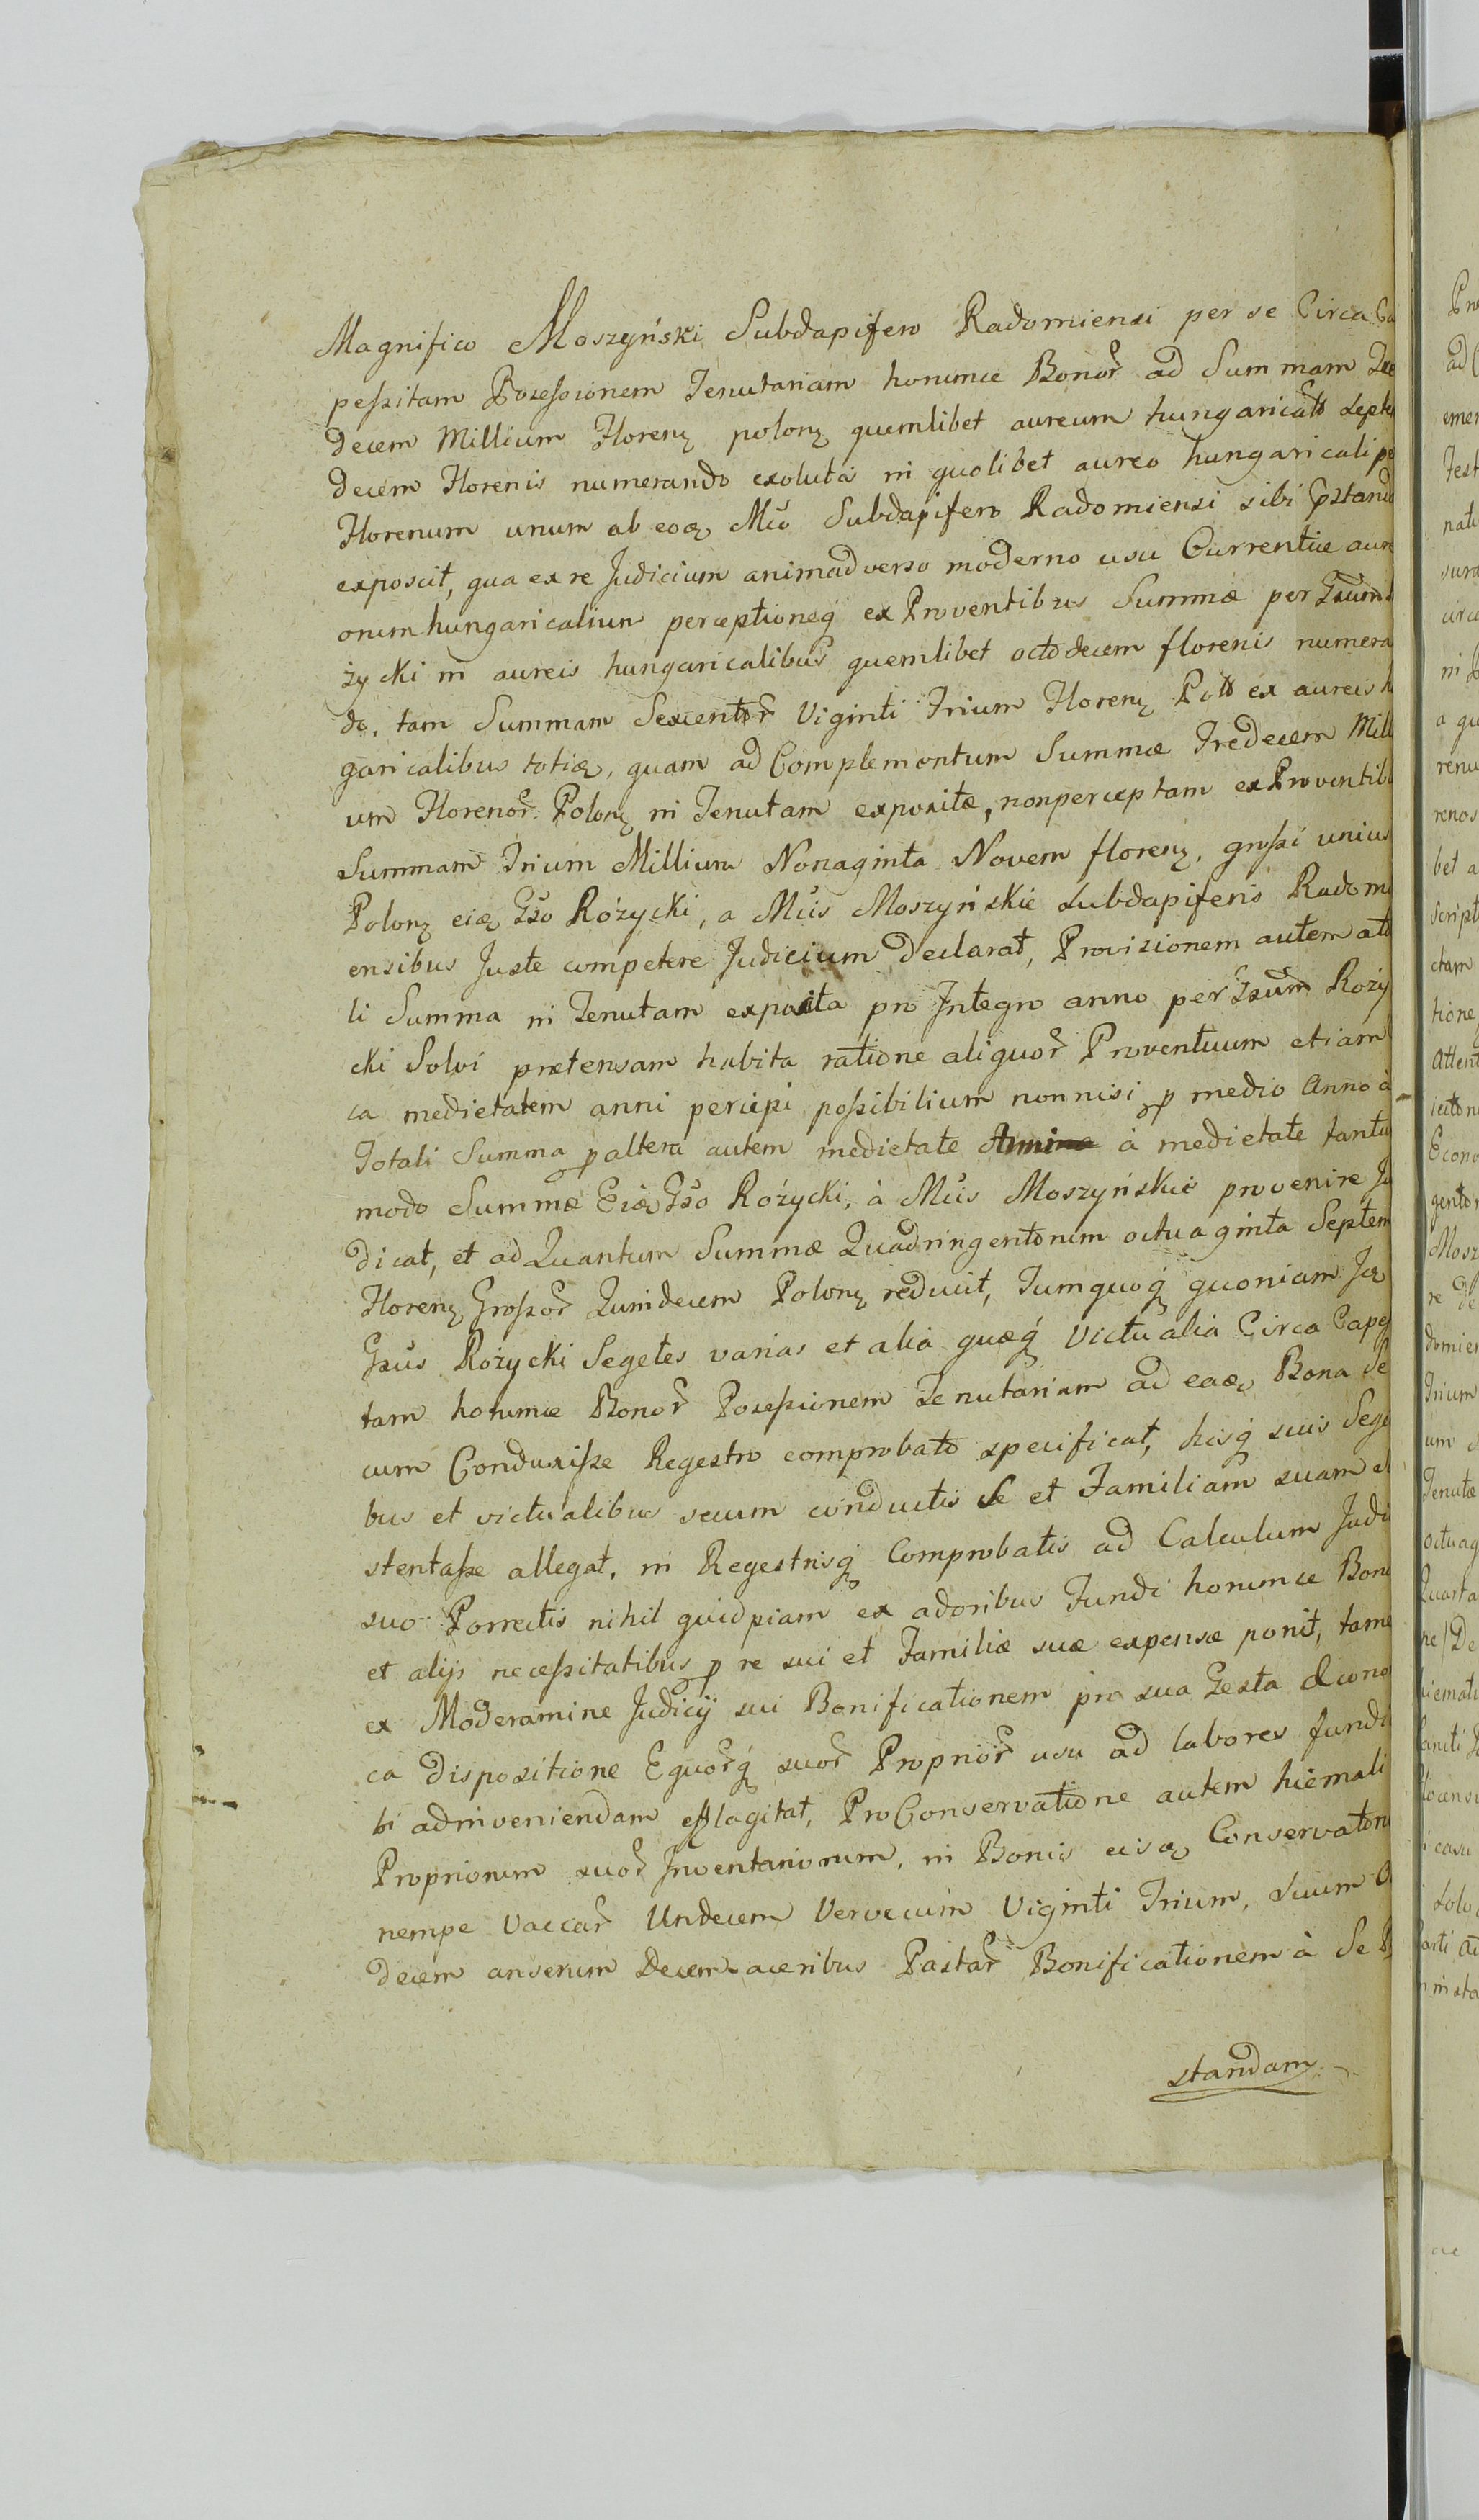 Magnifico Moszyński Subdapifero Radomiensi per se Circa Ca
peſsitam Poseſsionem Tenutariam horumce Bonor̃ ad Summam Tre
decem Millium Floren̨ polon̨ quemlibet aureum hungarical̃ Septe
decem Florenis numerando exoluta in quolibet aureo hungaricali pe
Florenum unum ab eoq̨ Mc̃o Subdapifero Radomiensi sibi p̃stand
exposcit, qua ex re Judicium animadverso moderno usu Currentiæ aure
orum hungaricalium perceptioneq́ ex Proventibus Summæ per Gs̃um
życki in aureis hungaricalibus quemlibet octodecem florenis numera
do, tam Summam Sexentor̃ Viginti Trium Floren̨ Poll̃ ex aureis h
garicalibus totiq̨, quam ad Complementum Summæ Tredecem Mill
um Florenor̃ Polon̨ in Tenutam expositæ, nonperceptam ex Proventib
Summam Trium Millium Nonaginta Novem floren̨, groſsi unius
Polon̨ eiq̨ Gs̃o Różycki, a Mc̃is Moszyńskie Subdapiferis Radomi
ensibus Juste competere Judicium Declarat, Provisionem autem a to
li Summa in Tenutam exposita pro Integro anno per Gs̃um Roży
cki Solvi prætensam habita ratione aliquor̃ Proventuum etiam
ca medietatem anni percipi poſsibilium nonnisi p medio Anno à
Totali Summa p altera autem medietate à medietate tantu
modo Summæ Eiq̨ Gs̃o Różycki, à Mc̃is Moszyńskie provenire Ju
dicat, et ad Quantum Summæ Quadringentorum octuaginta Septem
Floren̨ Groſsor̃ Quindecem Polon̨ reducit, Tumquoq́ quoniam Jq̨
Gs̃us Różycki Segetes varias et alia quæq́ Victualia Circa Capeſ
tam horumce Bonor̃ Poseſsionem Tenutariam ad eaq̨ Bona Se
cum Conduxiſse Regestro comprobato specificat, hisq́ suis Sege
bus et victualibus secum conductis Se et Familiam suam
stentaſse allegat, in Regestrisq́ Comprobatis ad Calculum Judi
suo Porrectis nihil quidpiam ex adoribus Fundi horumce Bon
et alijs neceſsitatibus p re sui et Familiæ suæ expensæ ponit, tame
ex Moderamine Judicij sui Bonificationem pro sua Gesta Œcono
ca Dispositione Equor̃q́ suor̃ Proprior̃ usu ad labores fundi
bi adinveniendam efflagitat, Pro Conservatione autem hiemali
Propriorum suor̃ Inventariorum, in Bonis eisq̨ Conservator
nempe Vaccar̃ Undecem Vervecum Viginti Trium, Suum O
decem anserum Decem aceribus Pastar̃ Bonificationem à Se P
standam